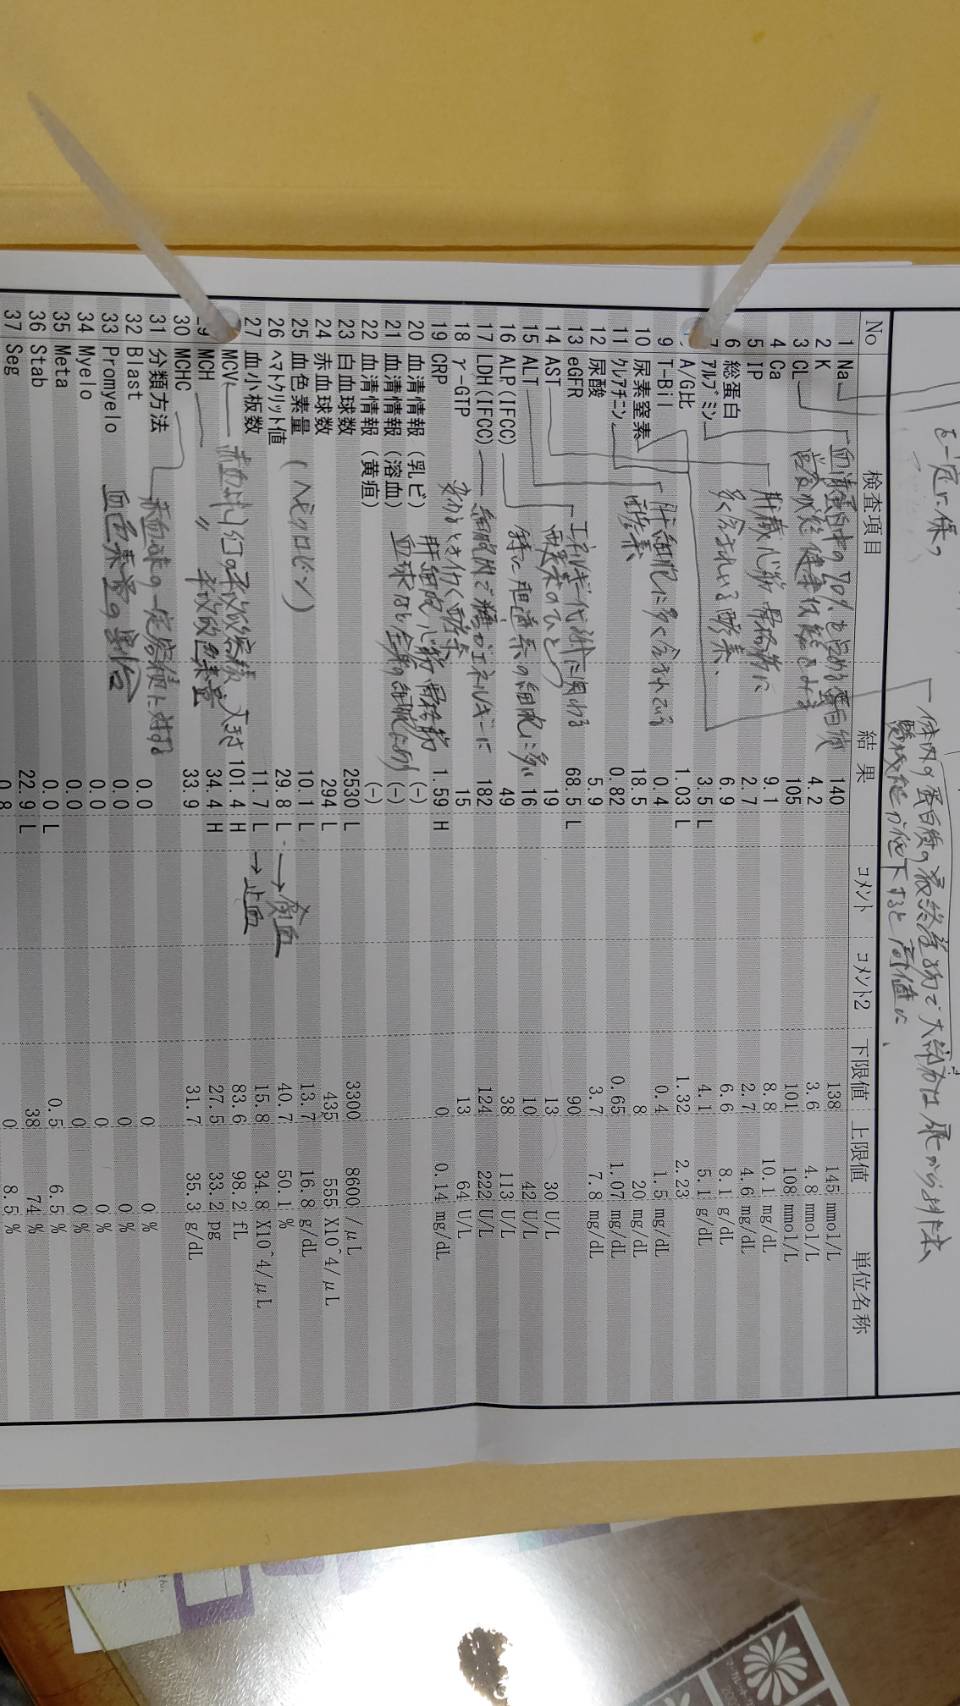 を一定に保つ
一体内の蛋白質の最終産物で大部分は尿から排泄
腎機能が低下すると高値に、
No 検査項目 結果 コメント コメント2 下限値 上限値 単位名称
1 Na 140 138 145 mmol/L
2 K 4.2 3.6 4.8 mmol/L
3 CL 105 101 108 mmol/L
4 Ca 9.1 8.8 10.1 mg/dL
5 IP 2.7 2.7 4.6 mg/dL
6 総蛋白 6.9 6.6 8.1 g/dL
7 アルブミン 3.5 L 4.1 5.1 g/dL
A/G比 1.03 L 1.32 2.23
9 T-Bil 0.4 0.4 1.5 mg/dL
10 尿素窒素 18.5 8 20 mg/dL
11 クレアチニン 0.82 0.65 1.07 mg/dL
12 尿酸 5.9 3.7 7.8 mg/dL
13 eGFR 68.5 L 90
14 AST 19 13 30 U/L
15 ALT 16 10 42 U/L
16 ALP(IFCC) 49 38 113 U/L
17 LDH(IFCC) 182 124 222 U/L
18 γ-GTP 15 13 64 U/L
19 CRP 1.59 H 0 0.14 mg/dL
20 血清情報（乳ビ） (-)
21 血清情報（溶血） (-)
22 血清情報（黄疸） (-)
23 白血球数 2530 L 3300 8600 /μL
24 赤血球数 294 L 435 555 X10^4/μL
25 血色素量 (ヘモグロビン) 10.1 L 13.7 16.8 g/dL
26 ヘマトクリット値 29.8 L →貧血 40.7 50.1 %
27 血小板数 11.7 L →止血 15.8 34.8 X10^4/μL
MCV 赤血球1個の平均容積 大対 101.4 H 83.6 98.2 fL
29 MCH 〃 平均血色素量 34.4 H 27.5 33.2 pg
30 MCHC 33.9 31.7 35.3 g/dL
31 分類方法 赤血球の一定容積に対する
32 Blast 血色素量の割合 0.0 0 0 %
33 Promyelo 0.0 0 0 %
34 Myelo 0.0 0 0 %
35 Meta 0.0 L 0.5 6.5 %
36 Stab 22.9 L 38 74 %
37 Seg 0.8 0 8.5 %
血清蛋白中の
健康状態をみる
肝臓 心筋 骨格筋に
多く含まれている酵素、
肝細胞に多く含まれている
酵素
エネルギー代謝に関わる
酵素のひとつ
特に胆道系の細胞に多い
細胞内で糖がエネルギーに
変わるときに働く酵素
肝細胞 心筋 骨格筋
血球など全身の細胞に